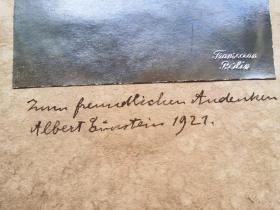 Berlin
Zum freundlichen Andenken
Albert Einstein 1921.